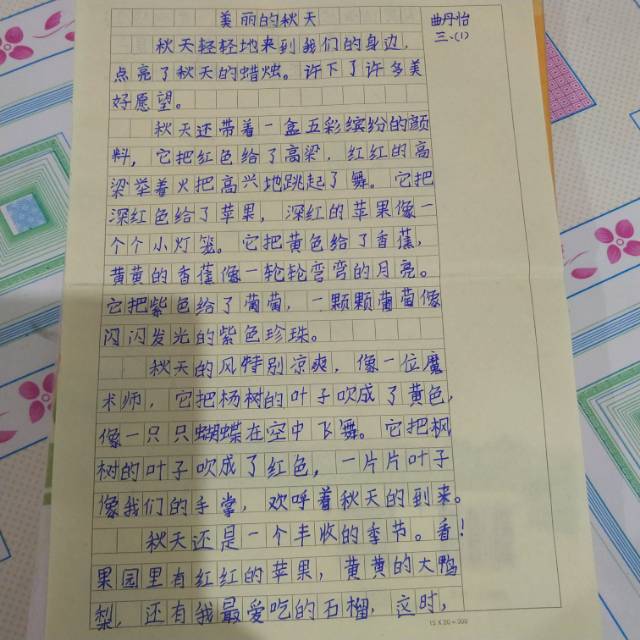 美丽的秋天
曲丹怡
三.(1)
秋天轻轻地来到我们的身边,
点亮了秋天的蜡烛。许下了许多美
好愿望。
秋天还带着一盒五彩缤纷的颜
料,它把红色给了高梁,红红的高
梁举着火把高兴地跳起了舞。它把
深红色给了苹果,深红的苹果像一
个个小灯笼。它把黄色给了香蕉,
黄黄的香蕉像一轮轮弯弯的月亮。
它把紫色给了葡萄,一颗颗葡萄像
闪闪发光的紫色珍珠。
秋天的风特别凉爽,像一位魔
术师,它把杨树的叶子吹成了黄色,
像一只只蝴蝶在空中飞舞。它把枫
树的叶子吹成了红色,一片片叶子
像我们的手掌,欢呼着秋天的到来。
秋天还是一个丰收的季节。看!
果园里有红红的苹果,黄黄的大鸭
梨,还有我最爱吃的石榴,这时,